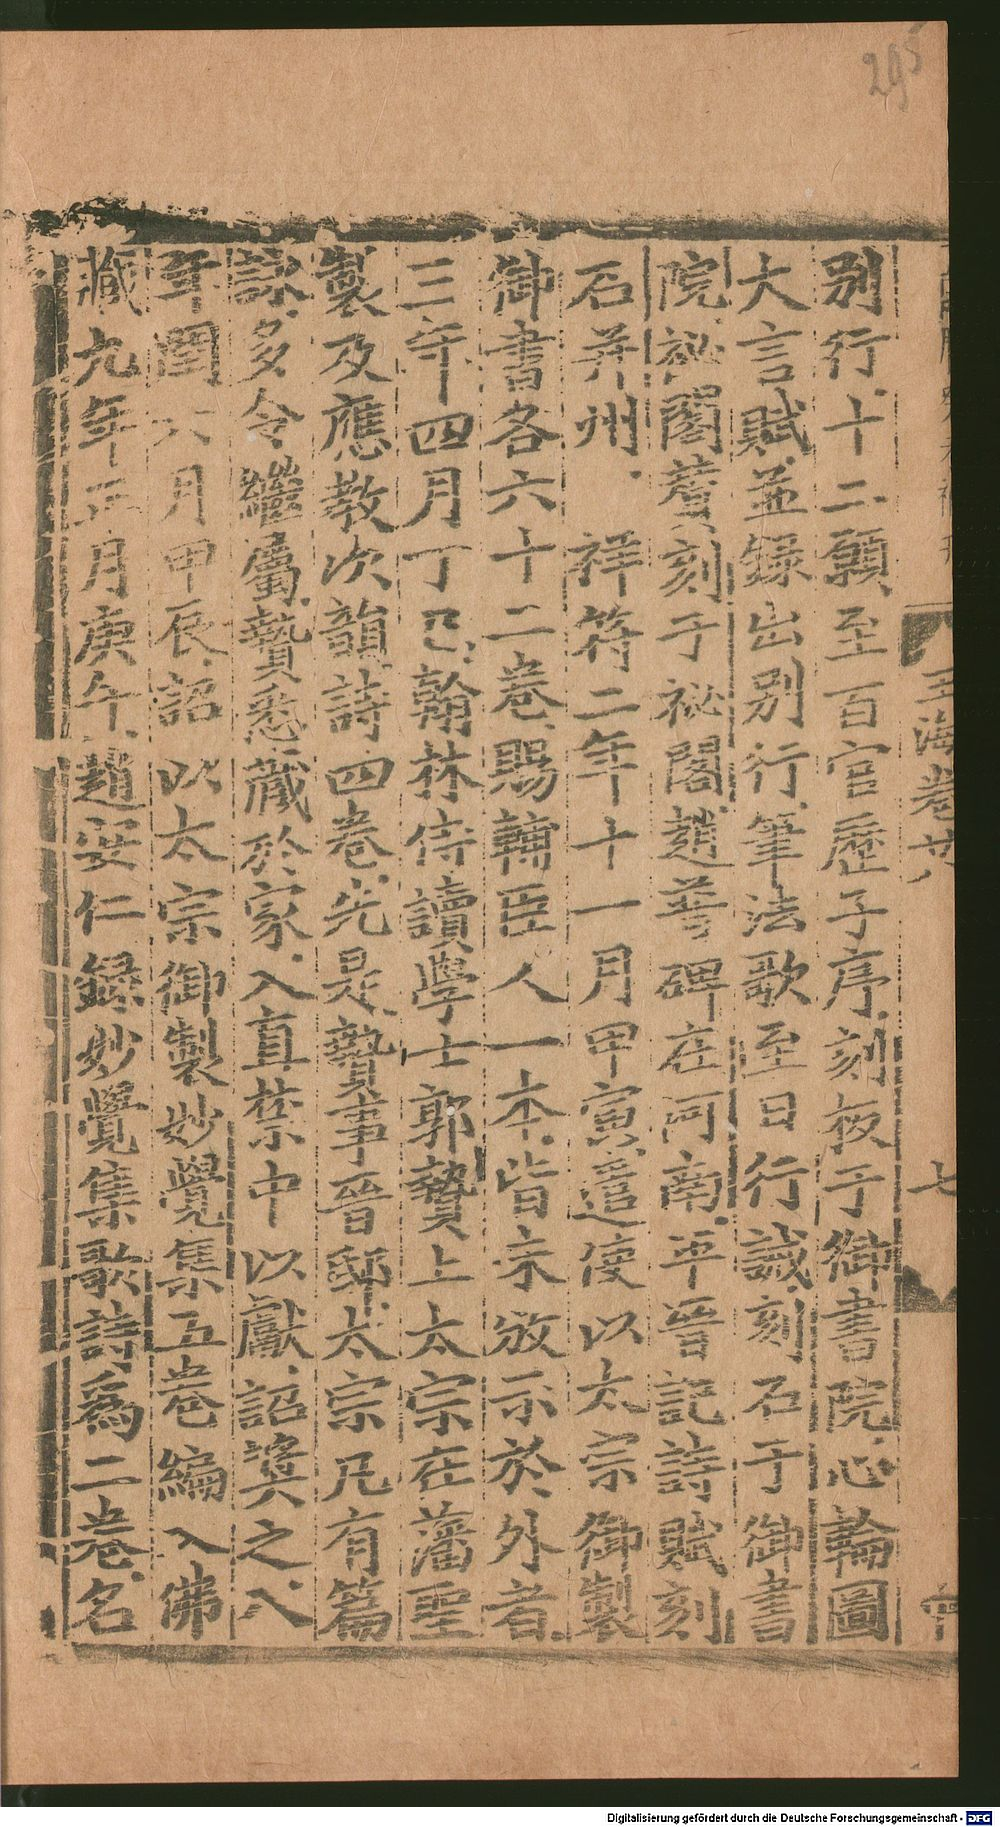 295
玉海卷廿八
七
別行十二願至百官歷子序刻夜于御書院心輪圖
大言賦並錄出別行筆法歌至日行誡刻石于御書
院祕閣舊刻于祕閣趙普碑在河南平晉記詩賦刻
石并州 祥符二年十一月甲寅遣使以太宗御製
御書各六十二卷賜輔臣人一本皆未放示於外者
三年四月丁巳翰林侍讀學士郭贄上太宗在藩聖
製及應教次韻詩四卷先是贄事晉邸太宗凡有篇
詠多令繼屬贄悉藏於家入直禁中以獻詔奨之八
年閏六月甲辰詔以太宗御製妙覺集五卷編入佛
藏九年正月庚午趙安仁錄妙覺集歌詩爲二卷名
Digitalisierung gefördert durch die Deutsche Forschungsgemeinschaft - DFG